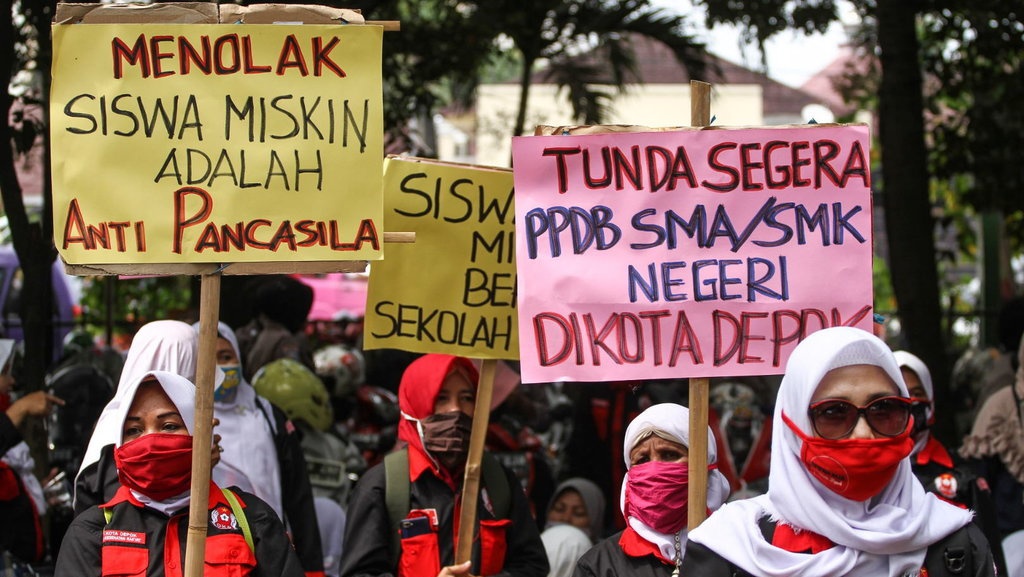 MENOLAK
SISWA MISKIN
ADALAH
ANTI PANCASILA
SISWA
MI
BE
SEKOLAH
TUNDA SEGERA
PPDB SMA/SMK
NEGERI
DIKOTA DEPOK
KOTA DEPOK